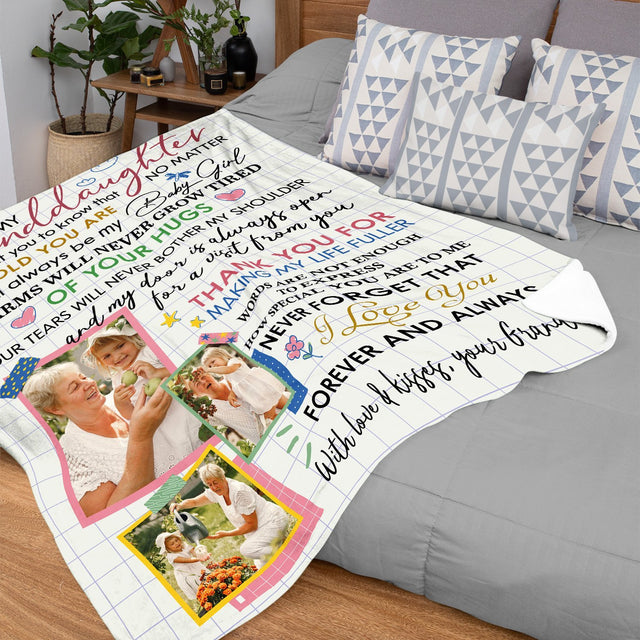 MY
nddaughter
T YOU TO KNOW THAT NO MATTER
OLD YOU ARE
always be my Baby Girl
ARMS WILL NEVER GROW TIRED
OF YOUR HUGS
OUR TEARS WILL NEVER BOTHER MY SHOULDER
and my door is always open
for a visit from you
THANK YOU FOR
MAKING MY LIFE FULLER
WORDS ARE NOT ENOUGH
TO EXPRESS
HOW SPECIAL YOU ARE TO ME
NEVER FORGET THAT
I Love You
FOREVER AND ALWAYS
With love & kisses, your Grand